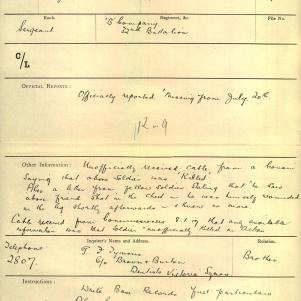 Rank.
Regiment, &c.
File No.
Sergeant
"B" Company
22nd Battalion
C/L
OFFICIAL REPORTS:
Officially reported 'Missing from July 20th
Other Information: Unofficially received, cable, from a cousin
Saying that above Soldier was 'Killed'
Also a letter from fellow Soldier stating that he saw
above friend shot in the chest as he was himself wounded
in the leg shortly afterwards & knows no more
Cable received from Commissioners that only available
information was that Soldier "unofficially Killed in Action
Inquirer's Name and Address.
Relation.
Telephone
2807.
Brother.
c/o Brown & Burton
Dentists Victoria Square
Instructions:
Write Base Records full particulars